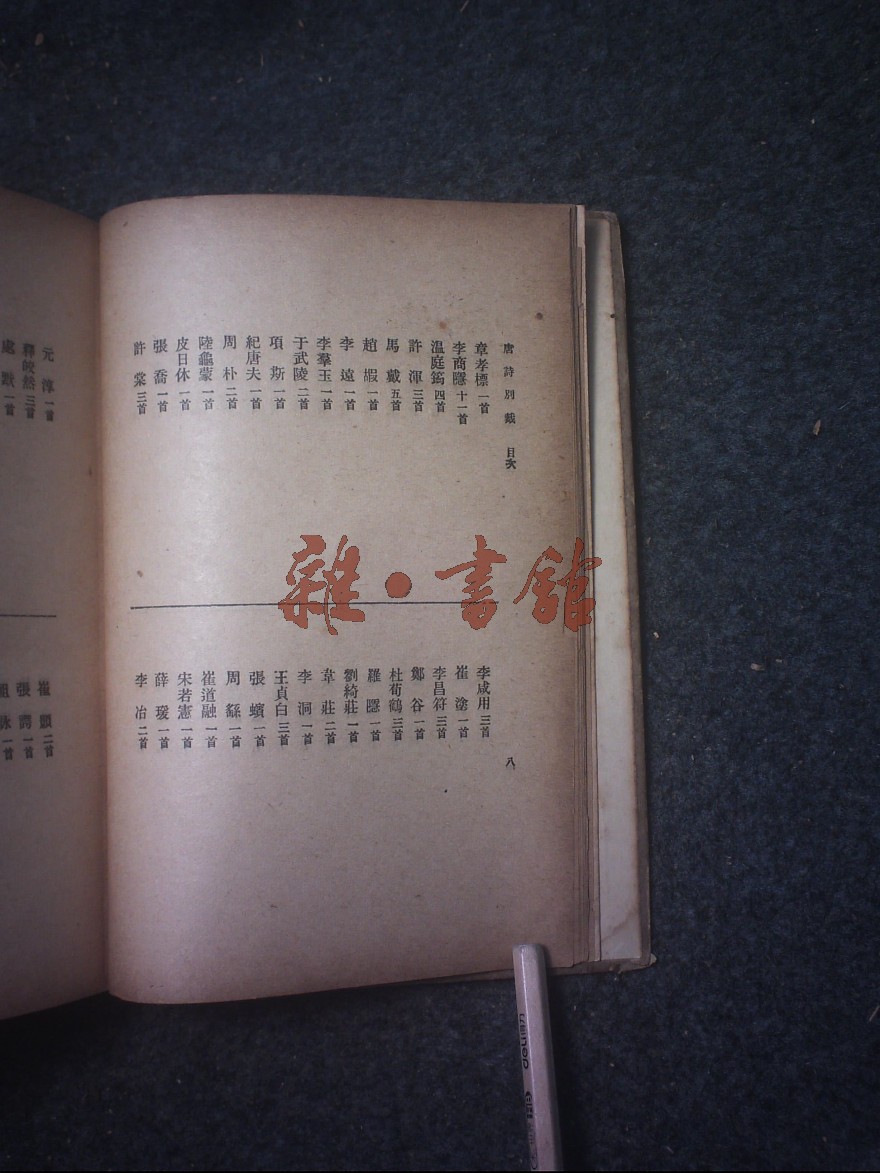 唐詩別裁 目次
八
章孝標一首
李商隱十一首
溫庭筠四首
許渾三首
馬戴五首
趙嘏一首
李遠一首
李羣玉一首
于武陵二首
項斯一首
紀唐夫一首
周朴二首
陸龜蒙一首
皮日休一首
張喬一首
許棠三首
李咸用三首
崔塗一首
李昌符三首
鄭谷一首
杜荀鶴三首
羅隱一首
劉綺莊一首
韋莊二首
李洞一首
王貞白三首
張蠙一首
周繇一首
崔道融一首
宋若憲一首
薛瑗一首
李冶二首
元淳一首
釋皎然三首
處默一首
崔顥二首
張謂一首
祖詠一首
雜·書館
deli得力